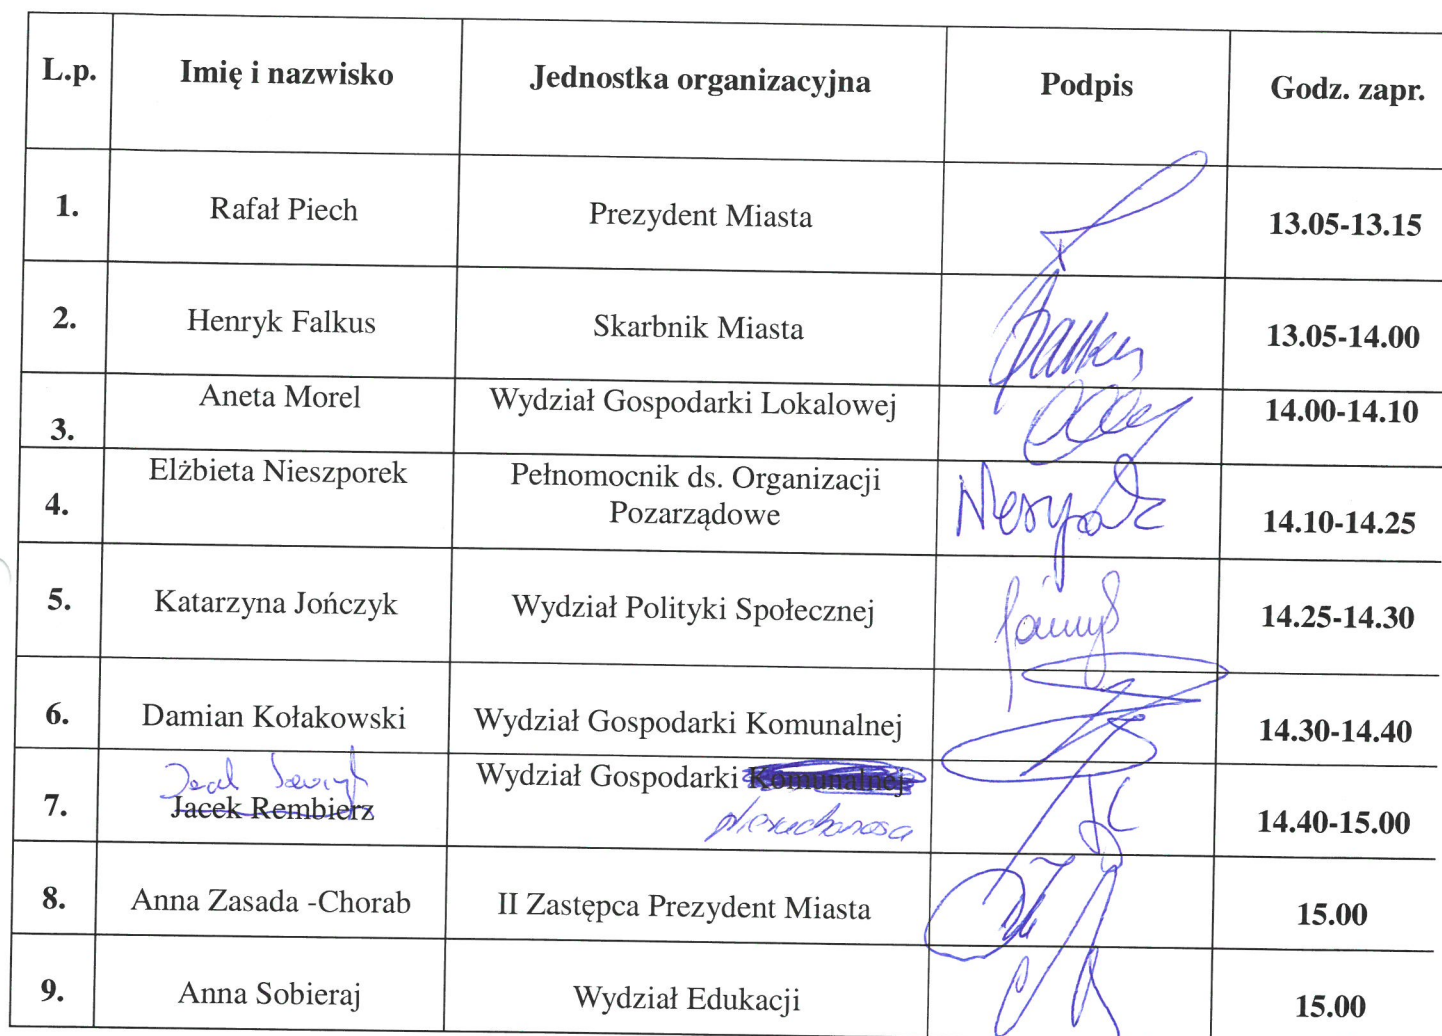 L.p. Imię i nazwisko Jednostka organizacyjna Podpis Godz. zapr.
1. Rafał Piech Prezydent Miasta 13.05-13.15
2. Henryk Falkus Skarbnik Miasta 13.05-14.00
3. Aneta Morel Wydział Gospodarki Lokalowej 14.00-14.10
4. Elżbieta Nieszporek Pełnomocnik ds. Organizacji
Pozarządowe 14.10-14.25
5. Katarzyna Jończyk Wydział Polityki Społecznej 14.25-14.30
6. Damian Kołakowski Wydział Gospodarki Komunalnej 14.30-14.40
7. Jacek Rembierz Wydział Gospodarki Komunalnej 14.40-15.00
8. Anna Zasada -Chorab II Zastępca Prezydent Miasta 15.00
9. Anna Sobieraj Wydział Edukacji 15.00